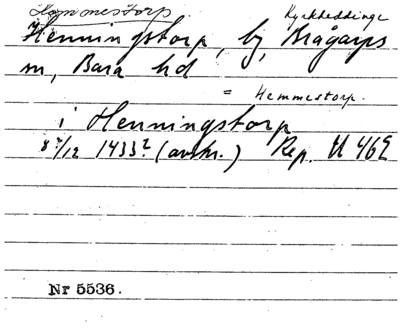 Hemmestorp Kyrkheddinge
Henningstorp, by, Brågarps
sn, Bara hd
= Hemmestorp.
i Henningstorp
8/12 1433? (avskr.) Rep. II 462
Nr 5536.